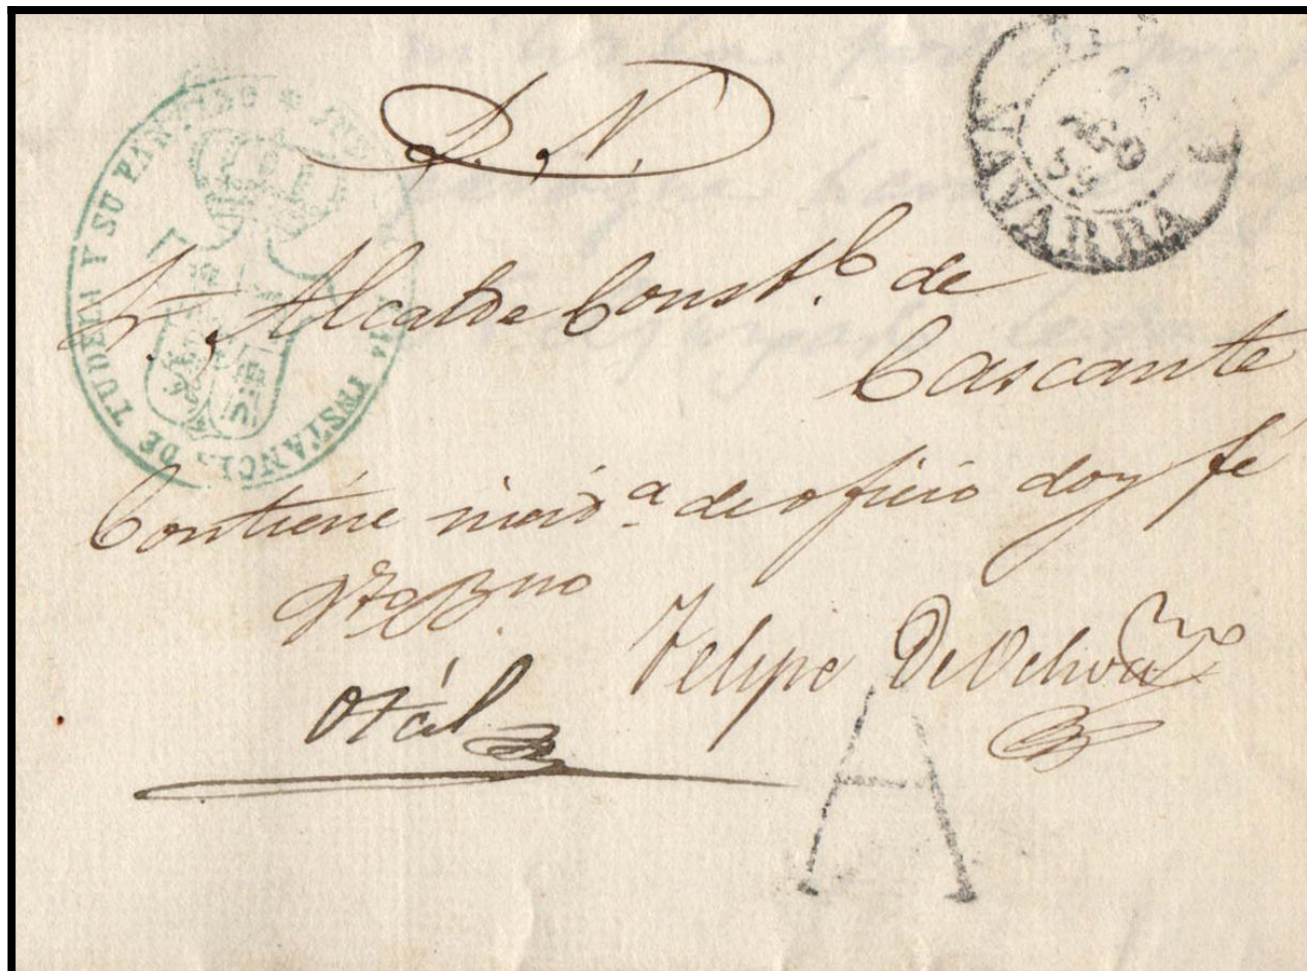 S. N.
JUZ 1ª INSTANCIA DE TUDELA Y SU PARTIDO
AGO
59
NAVARRA
Sr. Alcalde Const.l de
Cascante
Contiene de oficio doy fé
Otál
Felipe De Ochoa
A